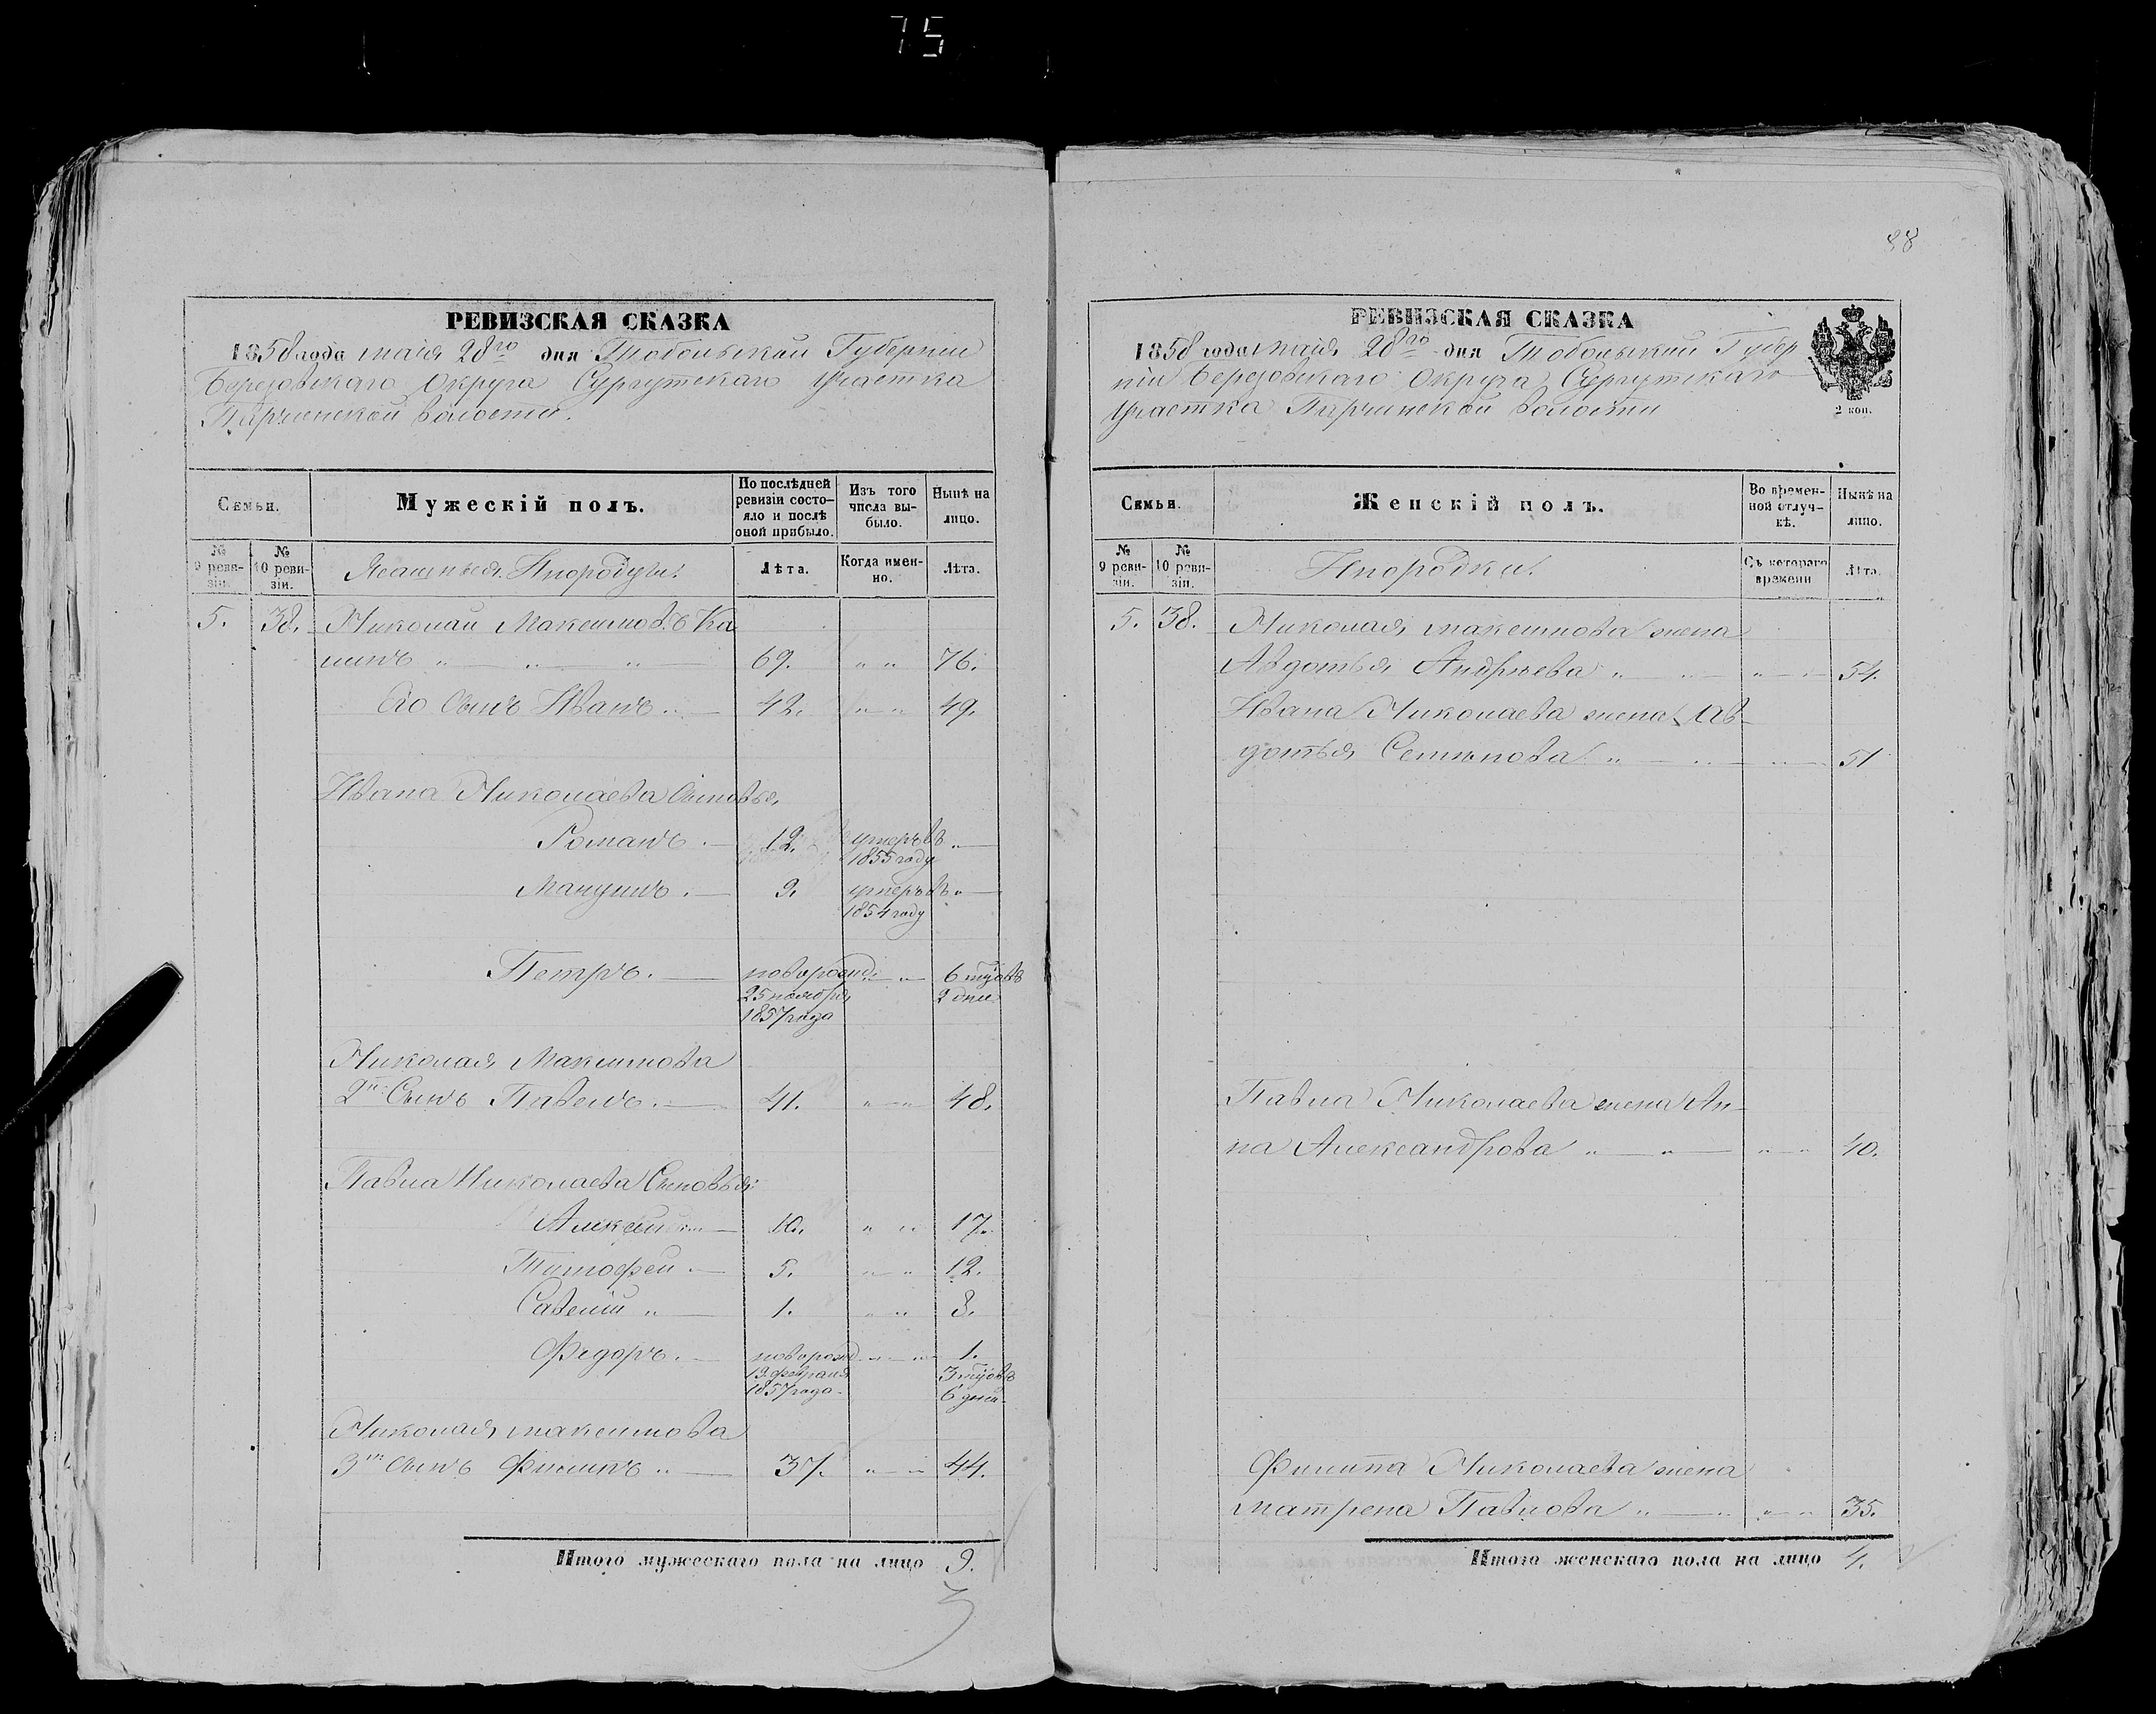 75
РЕВИЗСКАЯ СКАЗКА
1858 года маія 28го дня Тобольской Губерніи
Березовскаго Округа Сургутскаго участка
Пирчинской волости.
Семьи.
Мужескій полъ.
По послѣдней ревизіи состояло и послѣ оной прибыло.
Изъ того числа выбыло.
Нынѣ на лицо.
№ 9 ревизіи.
№ 10 ревизіи.
Ясашные Инородцы.
Лѣта.
Когда именно.
Лѣта.
5. 38. Николай Максимовъ Ка
нинъ " " " 69. " " 76.
Его Сынъ Иванъ " 42. " " 49.
Ивана Николаева Сыновья
Романъ. 12. умеръ въ "
1855 году
9. умеръ въ "
1854 году
Петръ. новорожд: " " 6 мцовъ
25 ноября 2 дни
1857 года
Николая Максимова
2й Сынъ Павелъ. 41. " " 48.
Павла Николаева Сыновья:
Алексей 10. " " 17.
Тимофей 5. " " 12.
Савелій " 1. " " 8.
Федоръ. новорожд " " 1.
19 февраля 3 мцовъ
1857 года 6 дней
Николая максимова
3й Сынъ Филипъ " 37. " " 44.
Итого мужескаго пола на лицо 9.
88
РЕВИЗСКАЯ СКАЗКА
1858 года маія 28го дня Тобольской Губер
ніи Березовскаго Округа Сургутскаго
участка Пирчинской волости
2 коп.
Семьи.
Женскій полъ.
Во временной отлучкѣ.
Нынѣ на лицо.
№ 9 ревизіи.
№ 10 ревизіи.
Инородки.
Съ котораго времени
Лѣта.
5. 38. Николая максимова жена
Авдотья Андреева " " " " 54.
Ивана Николаева жена Ав
дотья Семенова " " " 51
Павла Николаева жена Ан
на Александрова " " " " 40.
Филипа Николаева жена
матрена Павлова " " " " 35.
Итого женскаго пола на лицо 4.